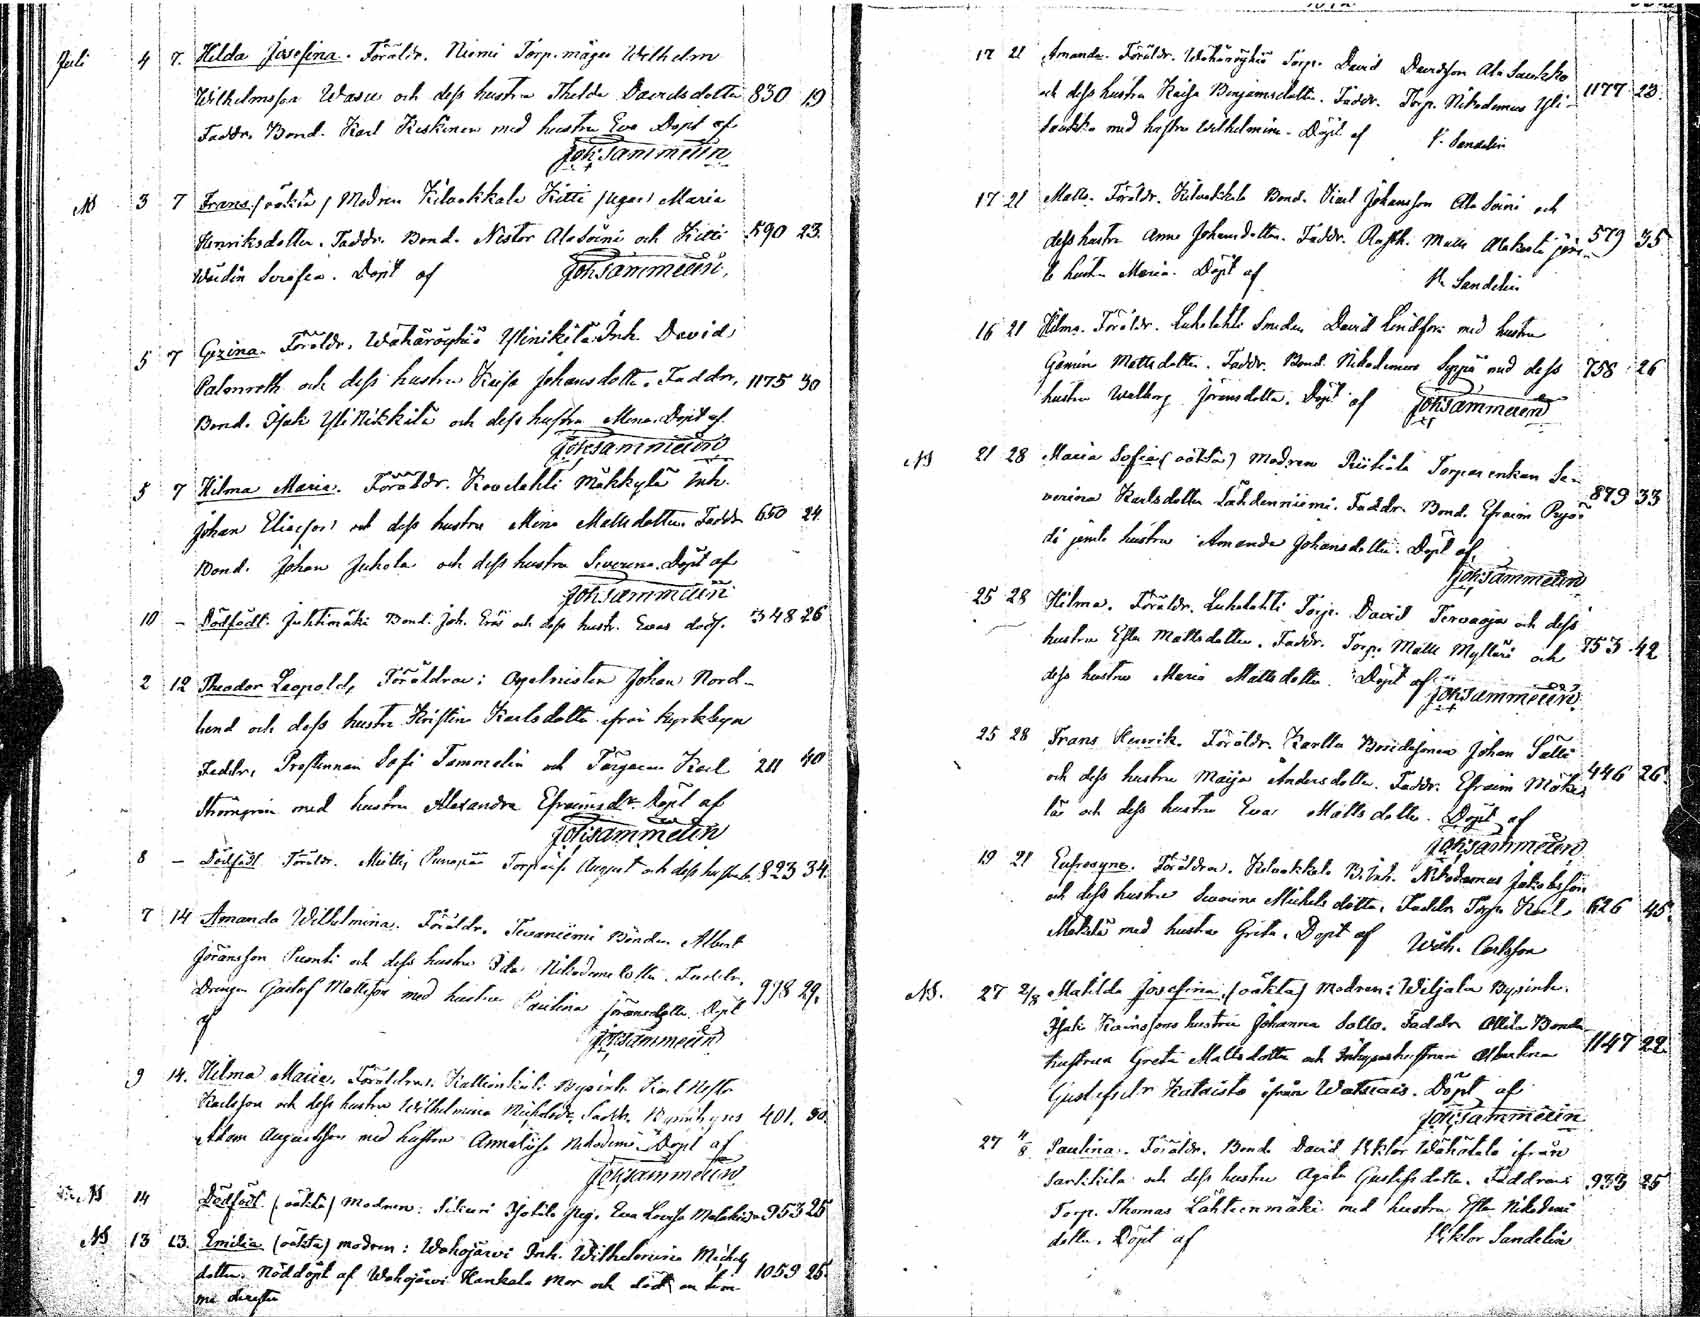 Juli 4 7. Hilda Josefina. Föräldr. Niemi Torp. måg Wilhelm
Wilhelmsson Wasu och dess hustru Thilda Davidsdotter 830 19
Faddr. Bond. Karl Keskinen med hustru Eva Döpt af
Joh: Sammelin
NB 3 7 Frans (oäkta) Modren Kilvakkala Kitti pigan Maria
Henriksdotter. Faddr. Bond. Nestor Ala Soini och Kitti 590 23.
Serafia. Döpt af Joh: Sammelin.
5 7 Föräldr. Wähäröyhiö Ylinikkilä Inh. David
Palonroth och dess hustru Kaisa Johansdotter. Faddr. 1175 30
Bond. Isak Yli Nikkilä och dess hustru Mena. Döpt af
Joh: Sammelin
5 7 Hilma Maria. Föräldr. Kovelahti Mäkkylä Inh.
Johan Eliasson och dess hustru Mina Mattsdotter. Faddr. 650 24.
Bond. Johan Juhola och dess hustru Severina. Döpt af
Joh: Sammelin
10 – Dödfödt. Juhtimäki Bond. Joh. och dess hustr. Evas dödf. 348 26
2 12 Theodor Leopold, Föräldrar: Orgelnisten Johan Nord-
lund och dess hustru Kristina Karlsdotter från Kyrkbyn
Faddr. Prostinnan Sofi Tammelin och Färgaren Karl 211 40
Strömgren med hustru Alexandra Efraimsdr. Döpt af
Joh: Sammelin
8 – Dödfödt Föräldr. August och dess hustru 823 34.
7 14 Amanda Wilhelmina. Föräldr. Tevaniemi Bonden Albert
Jöransson Puonti och dess hustru Ida Nikodemusdotter. Faddr.
Drengen Gustaf Mattsson med hustru Paulina Jöransdotter. Döpt 998 29.
af Joh: Sammelin
9 14. Hilma Maria. Föräldrar: Kallionkieli Byinh. Karl Nestor
Karlsson och dess hustru Wilhelmina Faddr. 401. 30.
Adam Augustsson med hustru Annaliisa Döpt af
Joh: Sammelin
NB 14 Dödfödt (oäkta) modren: Sikuri pig. Eva Lovisa 953 25
NB 13 13. Emilia (oäkta) modren: Wahojärvi Inh. Wilhelmina Michels
dotter. Nöddöpt af Wahojärvi Hankala Mor och död en tim-
me derefter 1059 25.
17 21 Amanda. Föräldr. Wähäröyhiö Torp. David Davidsson Ala Saukko
och dess hustru Kaisa Benjamsdotter. Faddr. Torp. Nikodemus Yli 1177 23.
Saukko med hustru Wilhelmina. Döpt af V. Sandelin
17 21 Matts. Föräldr. Kilvakkala Bond. Karl Johansson Ala Soini och
dess hustru Anna Johansdotter. Faddr. Matts 579 35
te hustru Maria. Döpt af V. Sandelin
16 21 Hilma. Föräldr. Luhalahti Smeden David Lindfors med hustru
Mattsdotter. Faddr. Bond. Nikodemus Seppä med dess 758 26
hustru Walborg Jöransdotter. Döpt af Joh: Sammelin
NB 21 28 Maria Sofia (oäkta) Modren Riitiala Torparenkan Se-
verina Karlsdotter Lähdenniemi. Faddr. Bond. Efraim 879 33
di jemte hustru Amanda Johansdotter. Döpt af
Joh: Sammelin
25 28 Hilma. Föräldr. Luhalahti Torp. David Tervaoja och dess
hustru Esther Mattsdotter. Faddr. Torp. Matts Mylläri och 753 42
dess hustru Maria Mattsdotter. Döpt af Joh: Sammelin
25 28 Frans Henrik. Föräldr. Kartta Bondesonen Johan Sälli
och dess hustru Maija Andersdotter. Faddr. Efraim Mäke- 446 26.
lä och dess hustru Eva Mattsdotter. Döpt af
Joh: Sammelin
19 21 Eufrosyne. Föräldrar. Kilvakkala B. Inh. Nikodemus Jakobsson
och dess hustru Severina Michelsdotter. Faddr. Torp. Karl 626 45.
Mäkelä med hustru Greta. Döpt af Wilh. Carlsson
NB. 27 2/8 Matilda Josefina (oäkta) Modren: Wiljala Byinh.
Isak hustru Johanna Faddr. Bonde-
hustrun Greta Mattsdotter och Inhyseshustrun Albertina 1147 22.
Gustafsdr. Kataisto ifrån Döpt af
Joh: Sammelin
27 11/8 Paulina. Föräldr. Bond. David Viktor Wähätalo ifrån
Sarkkila och dess hustru Agata Gustafsdotter. Faddrar: 933 25
Torp. Thomas Lähteenmäki med hustru Ester Nikodemi
dotter. Döpt af Viktor Sandelin